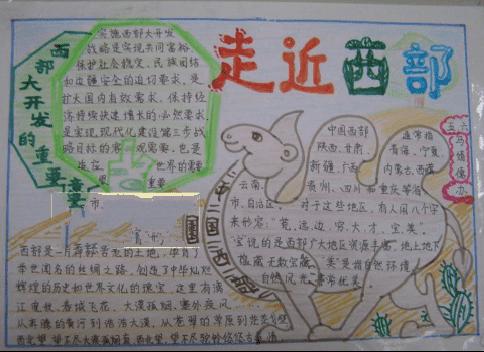 走近西部
西部大开发的重要
实施西部大开发
战略是实现共同富裕、
保护社会稳定、民族团结
和边疆安全的迫切要求，是
扩大国内有效需求、保持经
济持续快速增长的必然要求，
是实现现代化建设第三步战
略目标的客观需要，也是
世界的需要
重要
中国西部
通常指
陕西、甘肃、
青海、宁夏、
新疆、广西、
内蒙古、西藏、
云南、
贵州、四川和重庆等省
市、自治区。对于这些地区，有人用八个字
来形容："荒、远、边、穷、大、才、宝、美"。
"宝"说的是西部广大地区资源丰富，地上地下
蕴藏无数宝藏。"美"是指自然环境，
自然风光非常优美。
市、
西部是一片神奇
的土地，孕育了
举世闻名的丝绸之路，创造了中华灿烂
辉煌的历史和世界文化的瑰宝，这里有漓
江竞秋、春城飞花、大漠孤烟、塞外疾风……
从奔腾的黄河到浩浩大漠，从苍翠的草原到
西北望，望不尽大漠孤烟直，西北望，望不尽驼铃悠悠